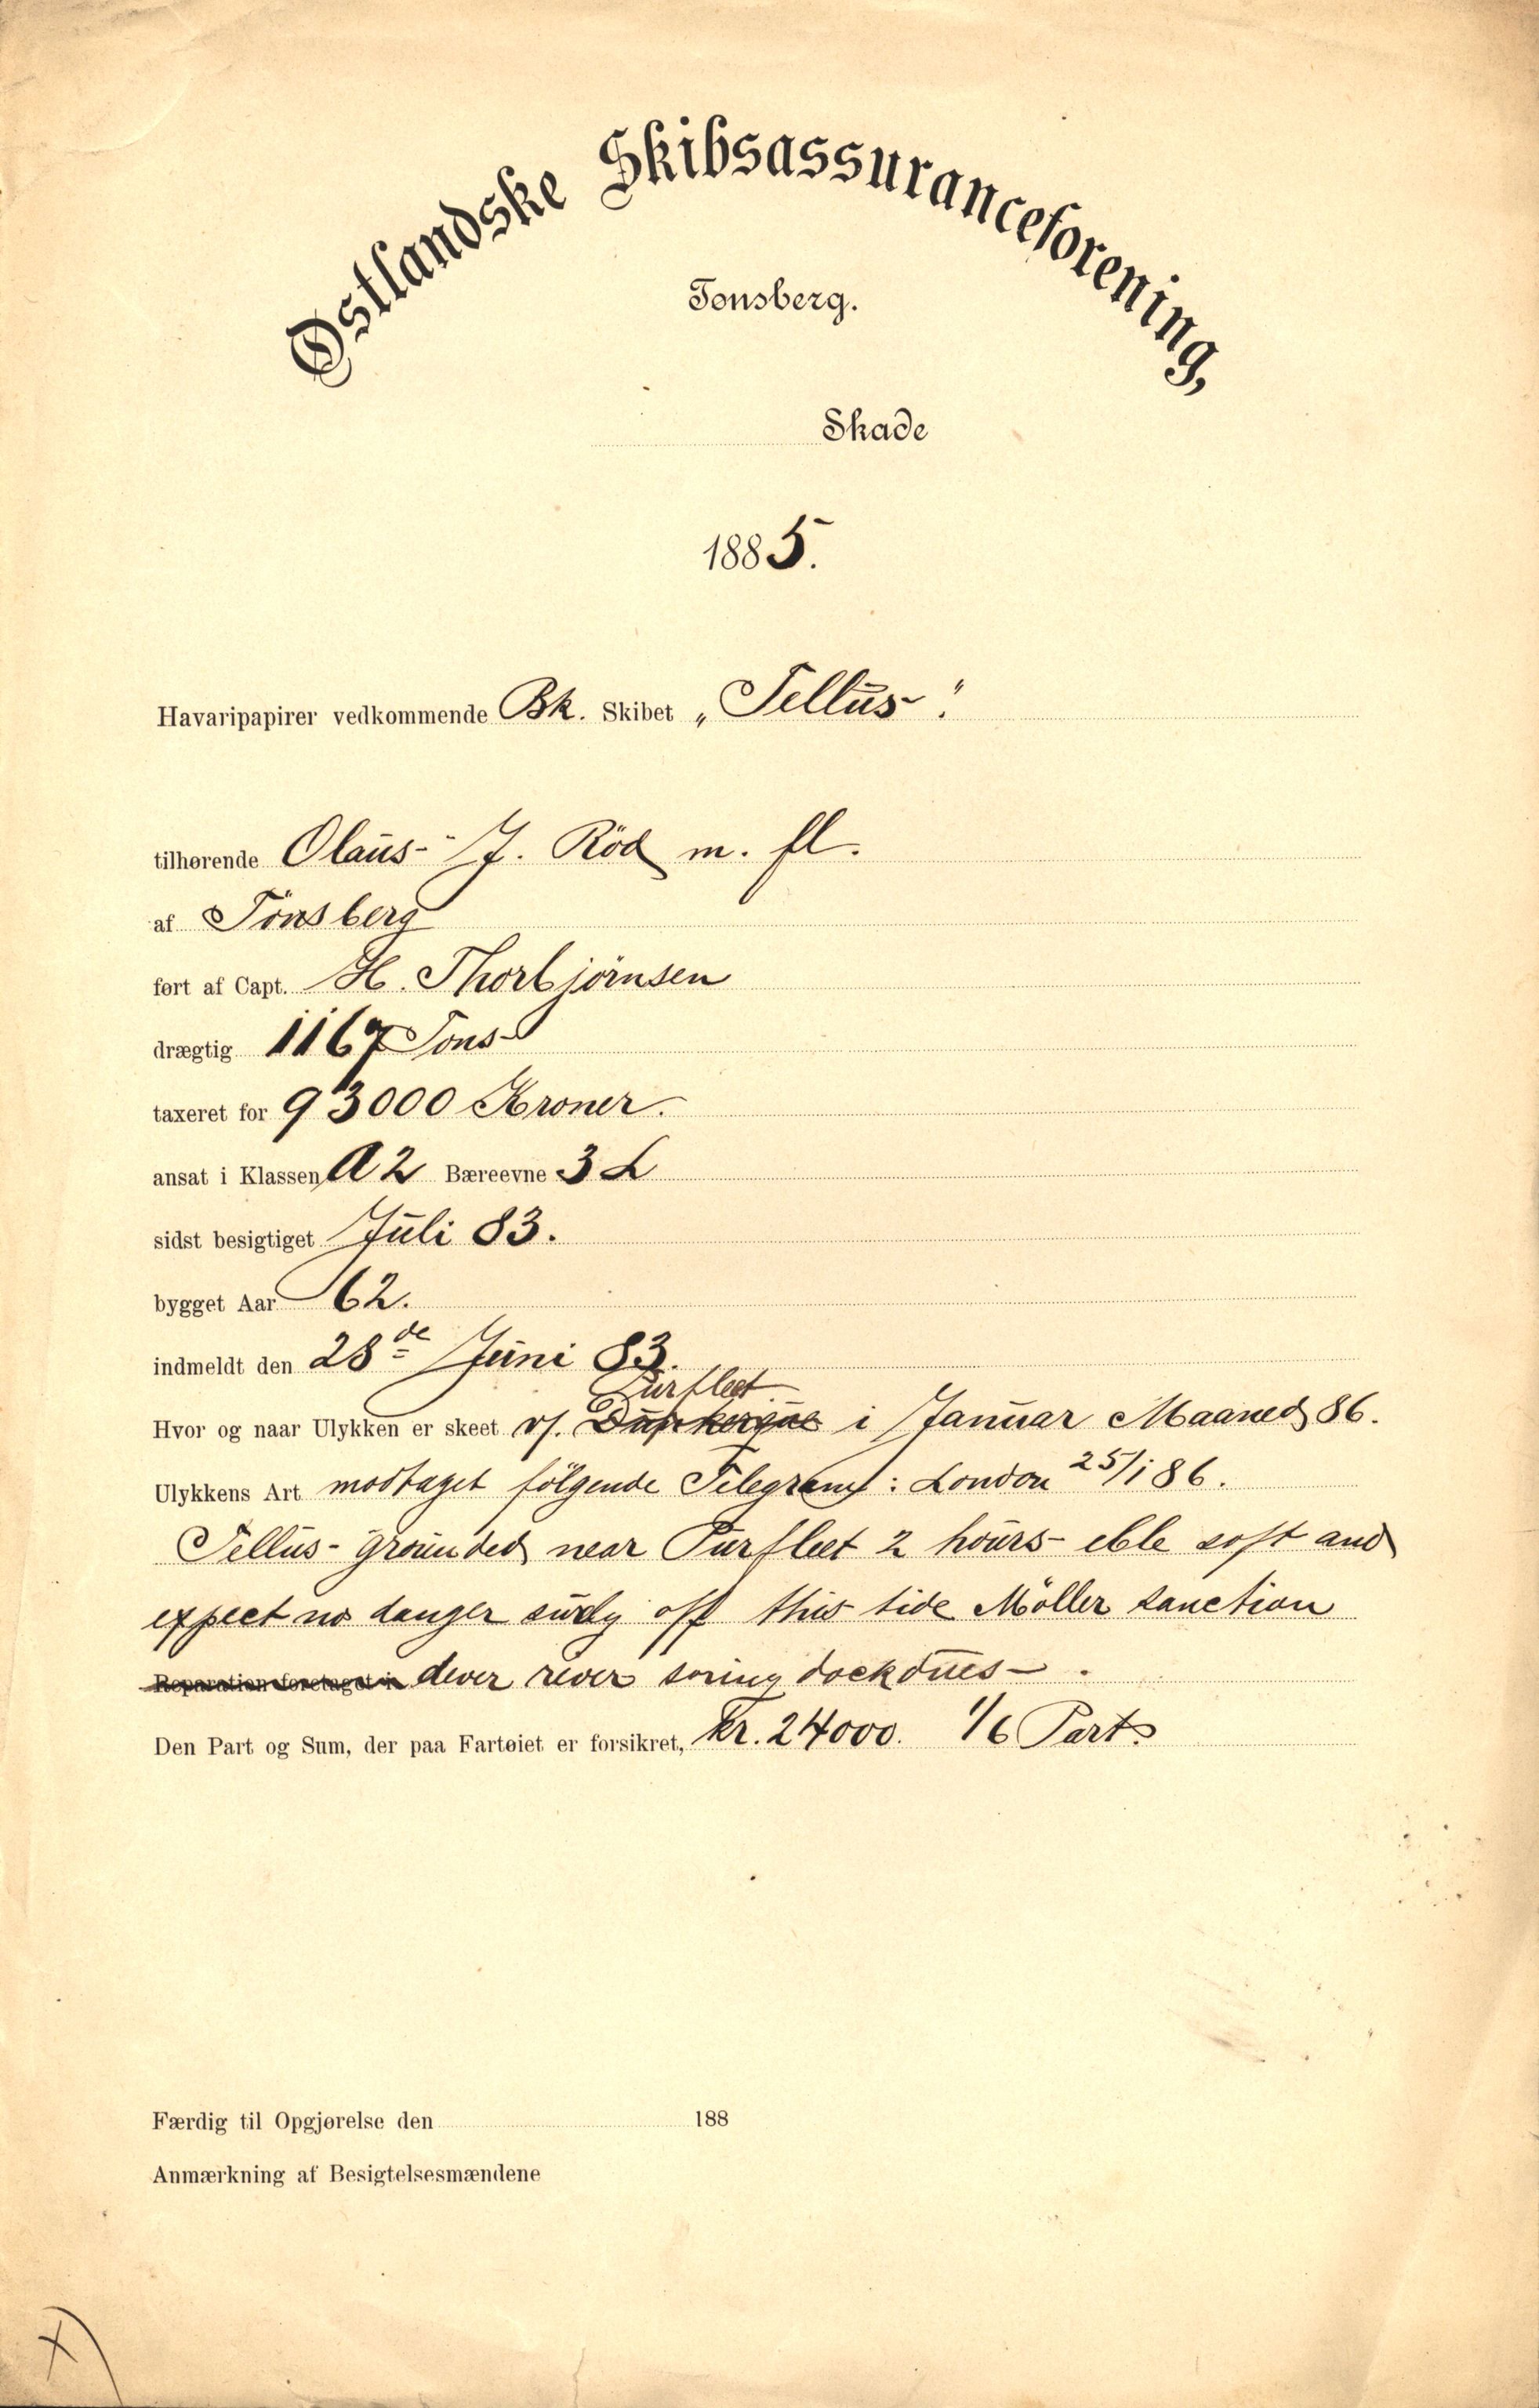 Østlandske Skibsassuranceforening,
Tønsberg.
Skade
1885.
Havaripapirer vedkommende Bk. Skibet „Tellus".
tilhørende Olaus J. Röd m. fl.
af Tönsberg
ført af Capt. H. Thorbjörnsen
drægtig 1167 Tons
taxeret for 93000 Kroner.
ansat i Klassen A2 Bæreevne 3 L
sidst besigtiget Juli 83.
bygget Aar 62.
indmeldt den 28de Juni 83.
Purfleet
Hvor og naar Ulykken er skeet v/. Dunkerque i Januar Maaned 86.
Ulykkens Art modtaget fölgende Telegram: London 25/1 86.
Tellus grounded near Purfleet 2 hours ebbe soft and
expect no danger off this tide Möller sanction
Reparation foretaget i river dockdues.
Den Part og Sum, der paa Fartøiet er forsikret, Kr. 24000. 1/6 Part.
Færdig til Opgjørelse den 188
Anmærkning af Besigtelsesmændene